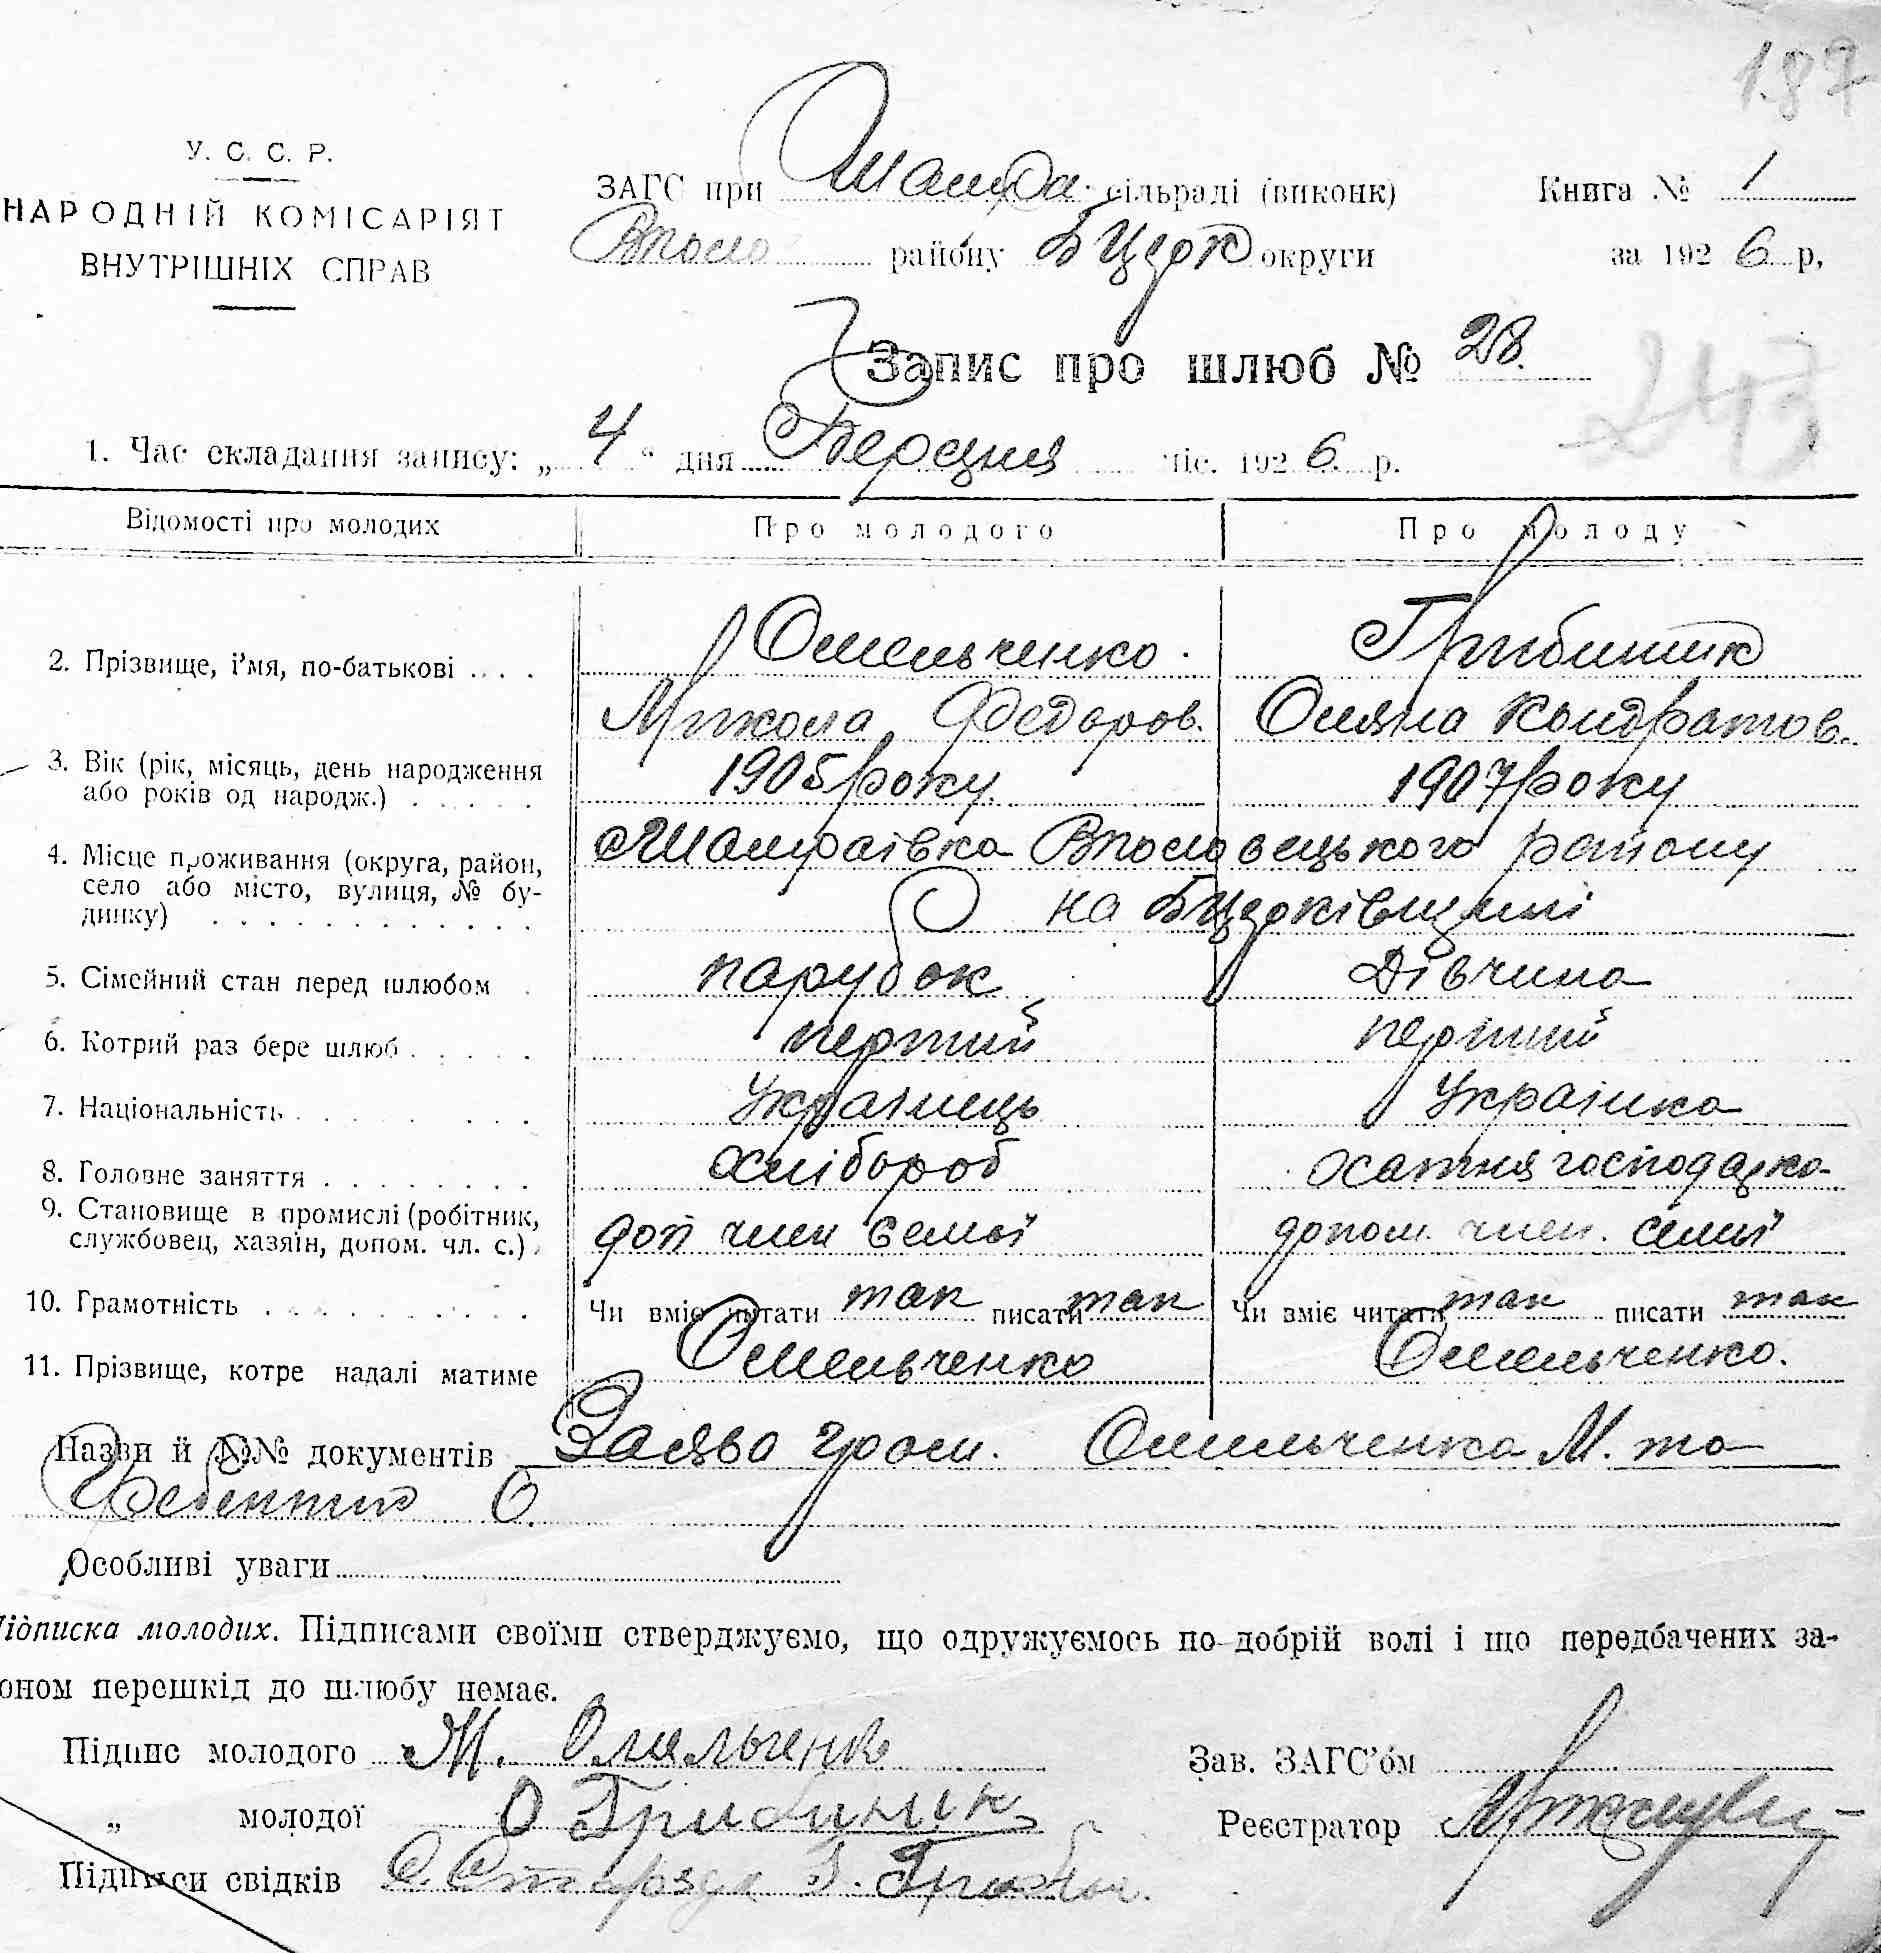 187
У. С. С. Р.
НАРОДНІЙ КОМІСАРІЯТ
ВНУТРІШНІХ СПРАВ
ЗАГС при Шамра сільраді (виконк) Книга № 1
району БЦерк округи за 1926 р,
Запис про шлюб № 28.
243
1. Час складання запису: „4“ дня Березня міс. 1926 р.
Відомості про молодих Про молодого Про молоду
2. Прізвище, і'мя, по-батькові .... Омельченко. Грибиник
Микола Федоров. Оляна Кондратов.
3. Вік (рік, місяць, день народження 1905 року 1907 року
або років од народж.) .....
4. Місце проживання (округа, район, Шамраівка Впословецького району
село або місто, вулиця, № бу-
динку) ............ на БЦерківщині
5. Сімейний стан перед шлюбом . парубок Дівчина
6. Котрий раз бере шлюб ..... перший перший
7. Національність ..... Українець Українка
8. Головне заняття ........ хлібороб хатня господарка
9. Становище в промислі (робітник, доп член семьї допом. член. семьї
службовец, хазяїн, допом. чл. с.)
10. Грамотність .......... Чи вміє читати так писати так Чи вміє читати так писати так
11. Прізвище, котре надалі матиме Омельченко Омельченко.
Назви й №№ документів Заява гром. Омельченка М. та
О.
Особливі уваги
Підписка молодих. Підписами своїми стверджуємо, що одружуємось по добрій волі і що передбачених за-
оном перешкід до шлюбу немає.
Підпис молодого М. Омельченк Зав. ЗАГС'ом
„ молодої О Грибиник Реєстратор
Підписи свідків